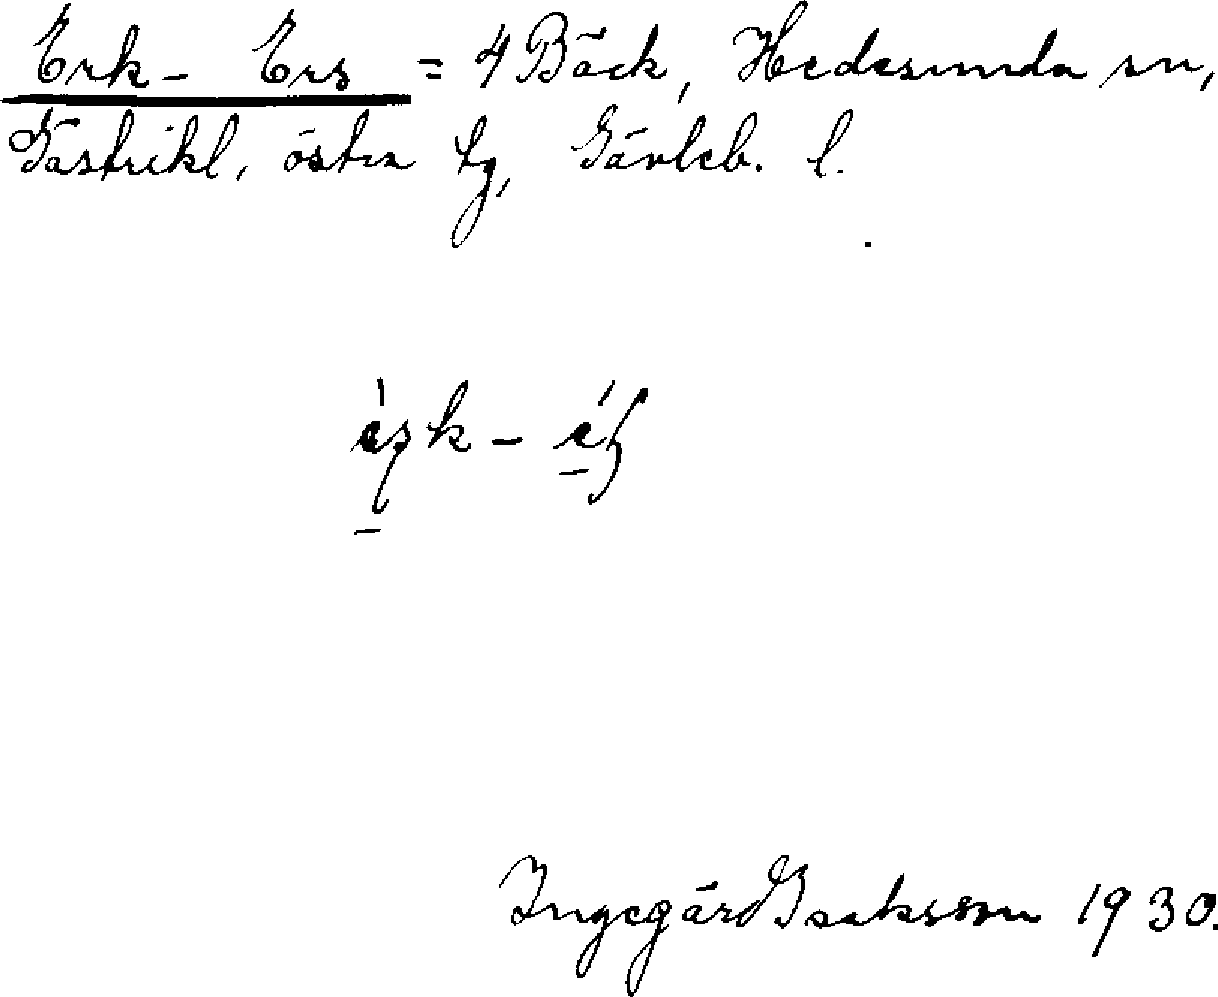 Erk- Ers = 4 Bäck, Hedesunda sn,
Gästrikl. östra tg, Gävleb. l.
Ingegärd Isaksson 1930.